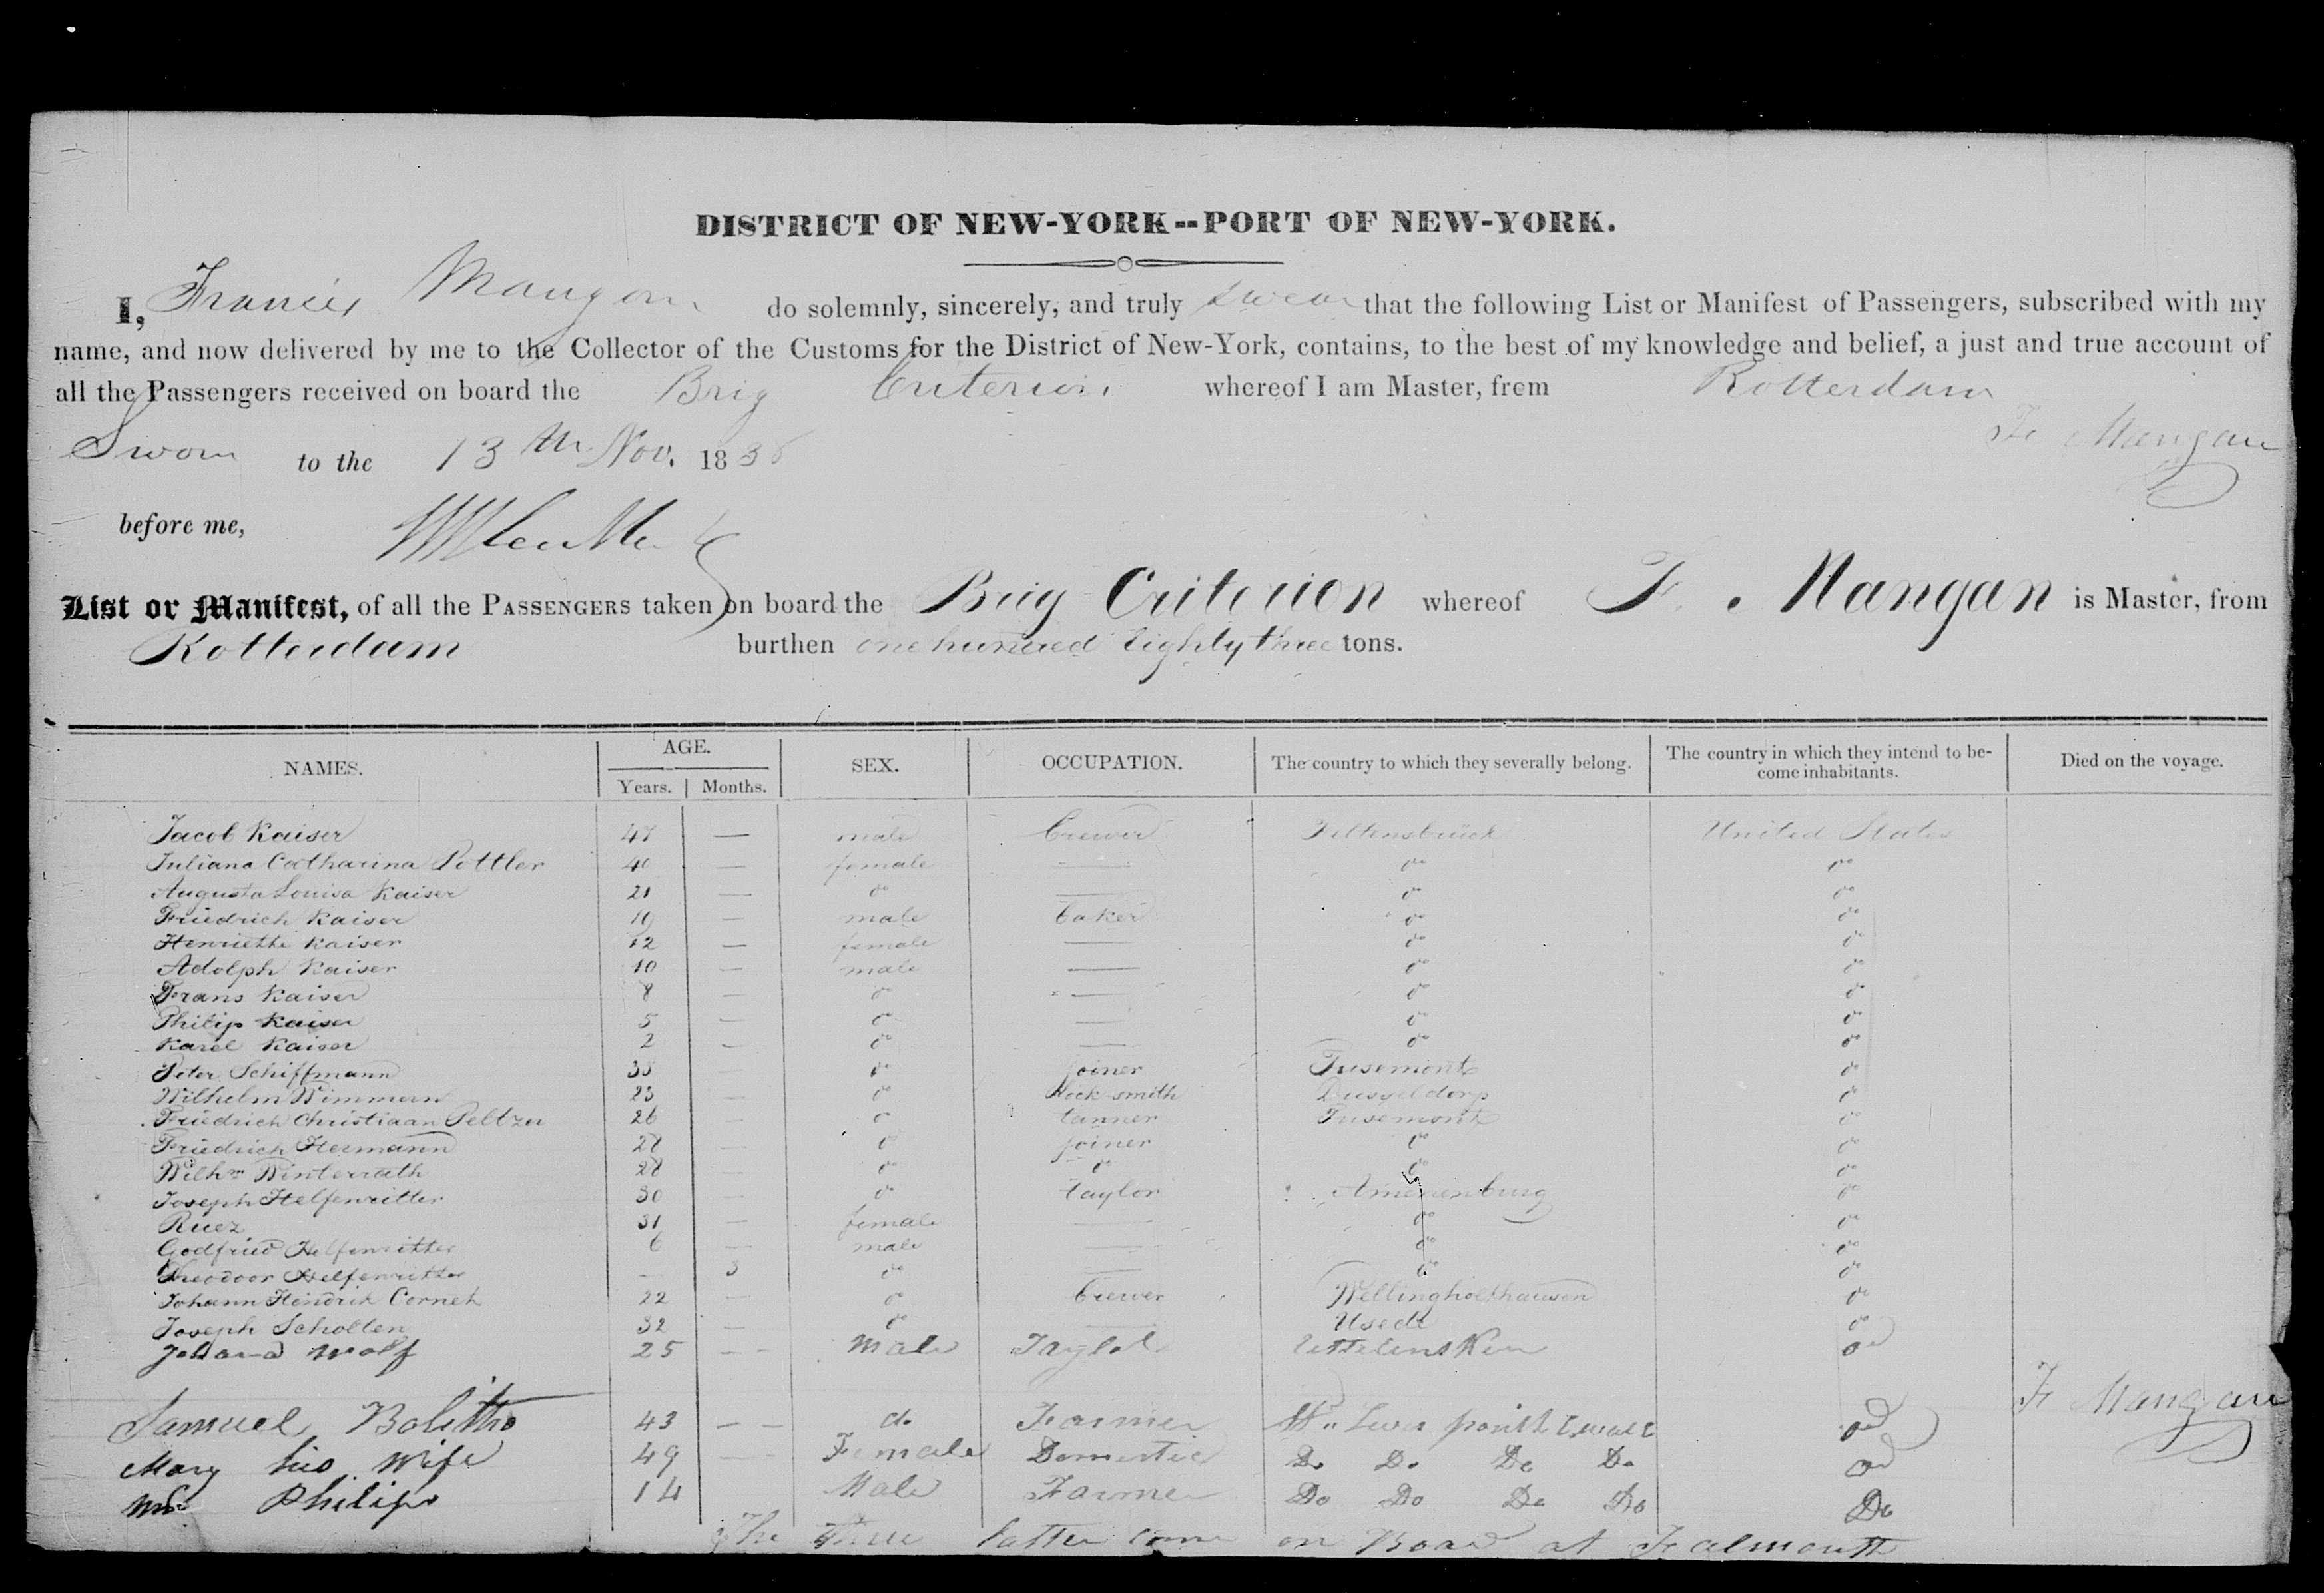 DISTRICT OF NEW-YORK--PORT OF NEW-YORK.
I, Francis Mangan do solemnly, sincerely, and truly swear that the following List or Manifest of Passengers, subscribed with my
name, and now delivered by me to the Collector of the Customs for the District of New-York, contains, to the best of my knowledge and belief, a just and true account of
all the Passengers received on board the Brig Criterion whereof I am Master, from Rotterdam
Sworn to the 13th Nov. 183 Fs Mangan
before me,
List or Manifest, of all the PASSENGERS taken on board the Brig Criterion whereof F. Mangan is Master, from
Rotterdam burthen one hundred eighty three tons.
NAMES. AGE. Years. Months. SEX. OCCUPATION. The country to which they severally belong. The country in which they intend to become inhabitants. Died on the voyage.
Jacob Kaiser 47 — male brewer Feltensbrück United States
Juliana Catharina Pottler 40 — female — do do
Augusta Louisa Kaiser 21 — do — do do
Friedrich Kaiser 19 — male baker do do
Henriette Kaiser 12 — female — do do
Adolph Kaiser 10 — male — do do
Frans Kaiser 8 — do — do do
Philip Kaiser 5 — do — do do
Karel Kaiser 2 — do — do do
Peter Schiffmann 35 do joiner Fusemont do
Wilhelm Wimmern 23 — do Lock-smith Dusseldorp do
Friedrich Christiaan Peltzer 26 — do tanner Fusemont do
Friedrich Hermann 27 — do joiner do do
Wilhm Winterrath 28 — do do do do
Joseph Helfenritter 30 — do taylor Amenenburg do
Ruez 31 — female — do do
Godfried Helfenritter 6 — male — do do
Theodoor Helfenritter — 3 do — do do
Johann Hendrik Cornek 22 — do brewer Wellingholthausen do
Joseph Scholten 32 — do — Usedt do
Wolf 25 — Male Taylor do
Samuel Bolitho 43 — do Farmer do Fs Mangan
Mary his Wife 49 — Female Domestic Do Do Do Do do
Wm Philips 14 Male Farmer Do Do Do Do Do
The three latter came on Board at Falmouth